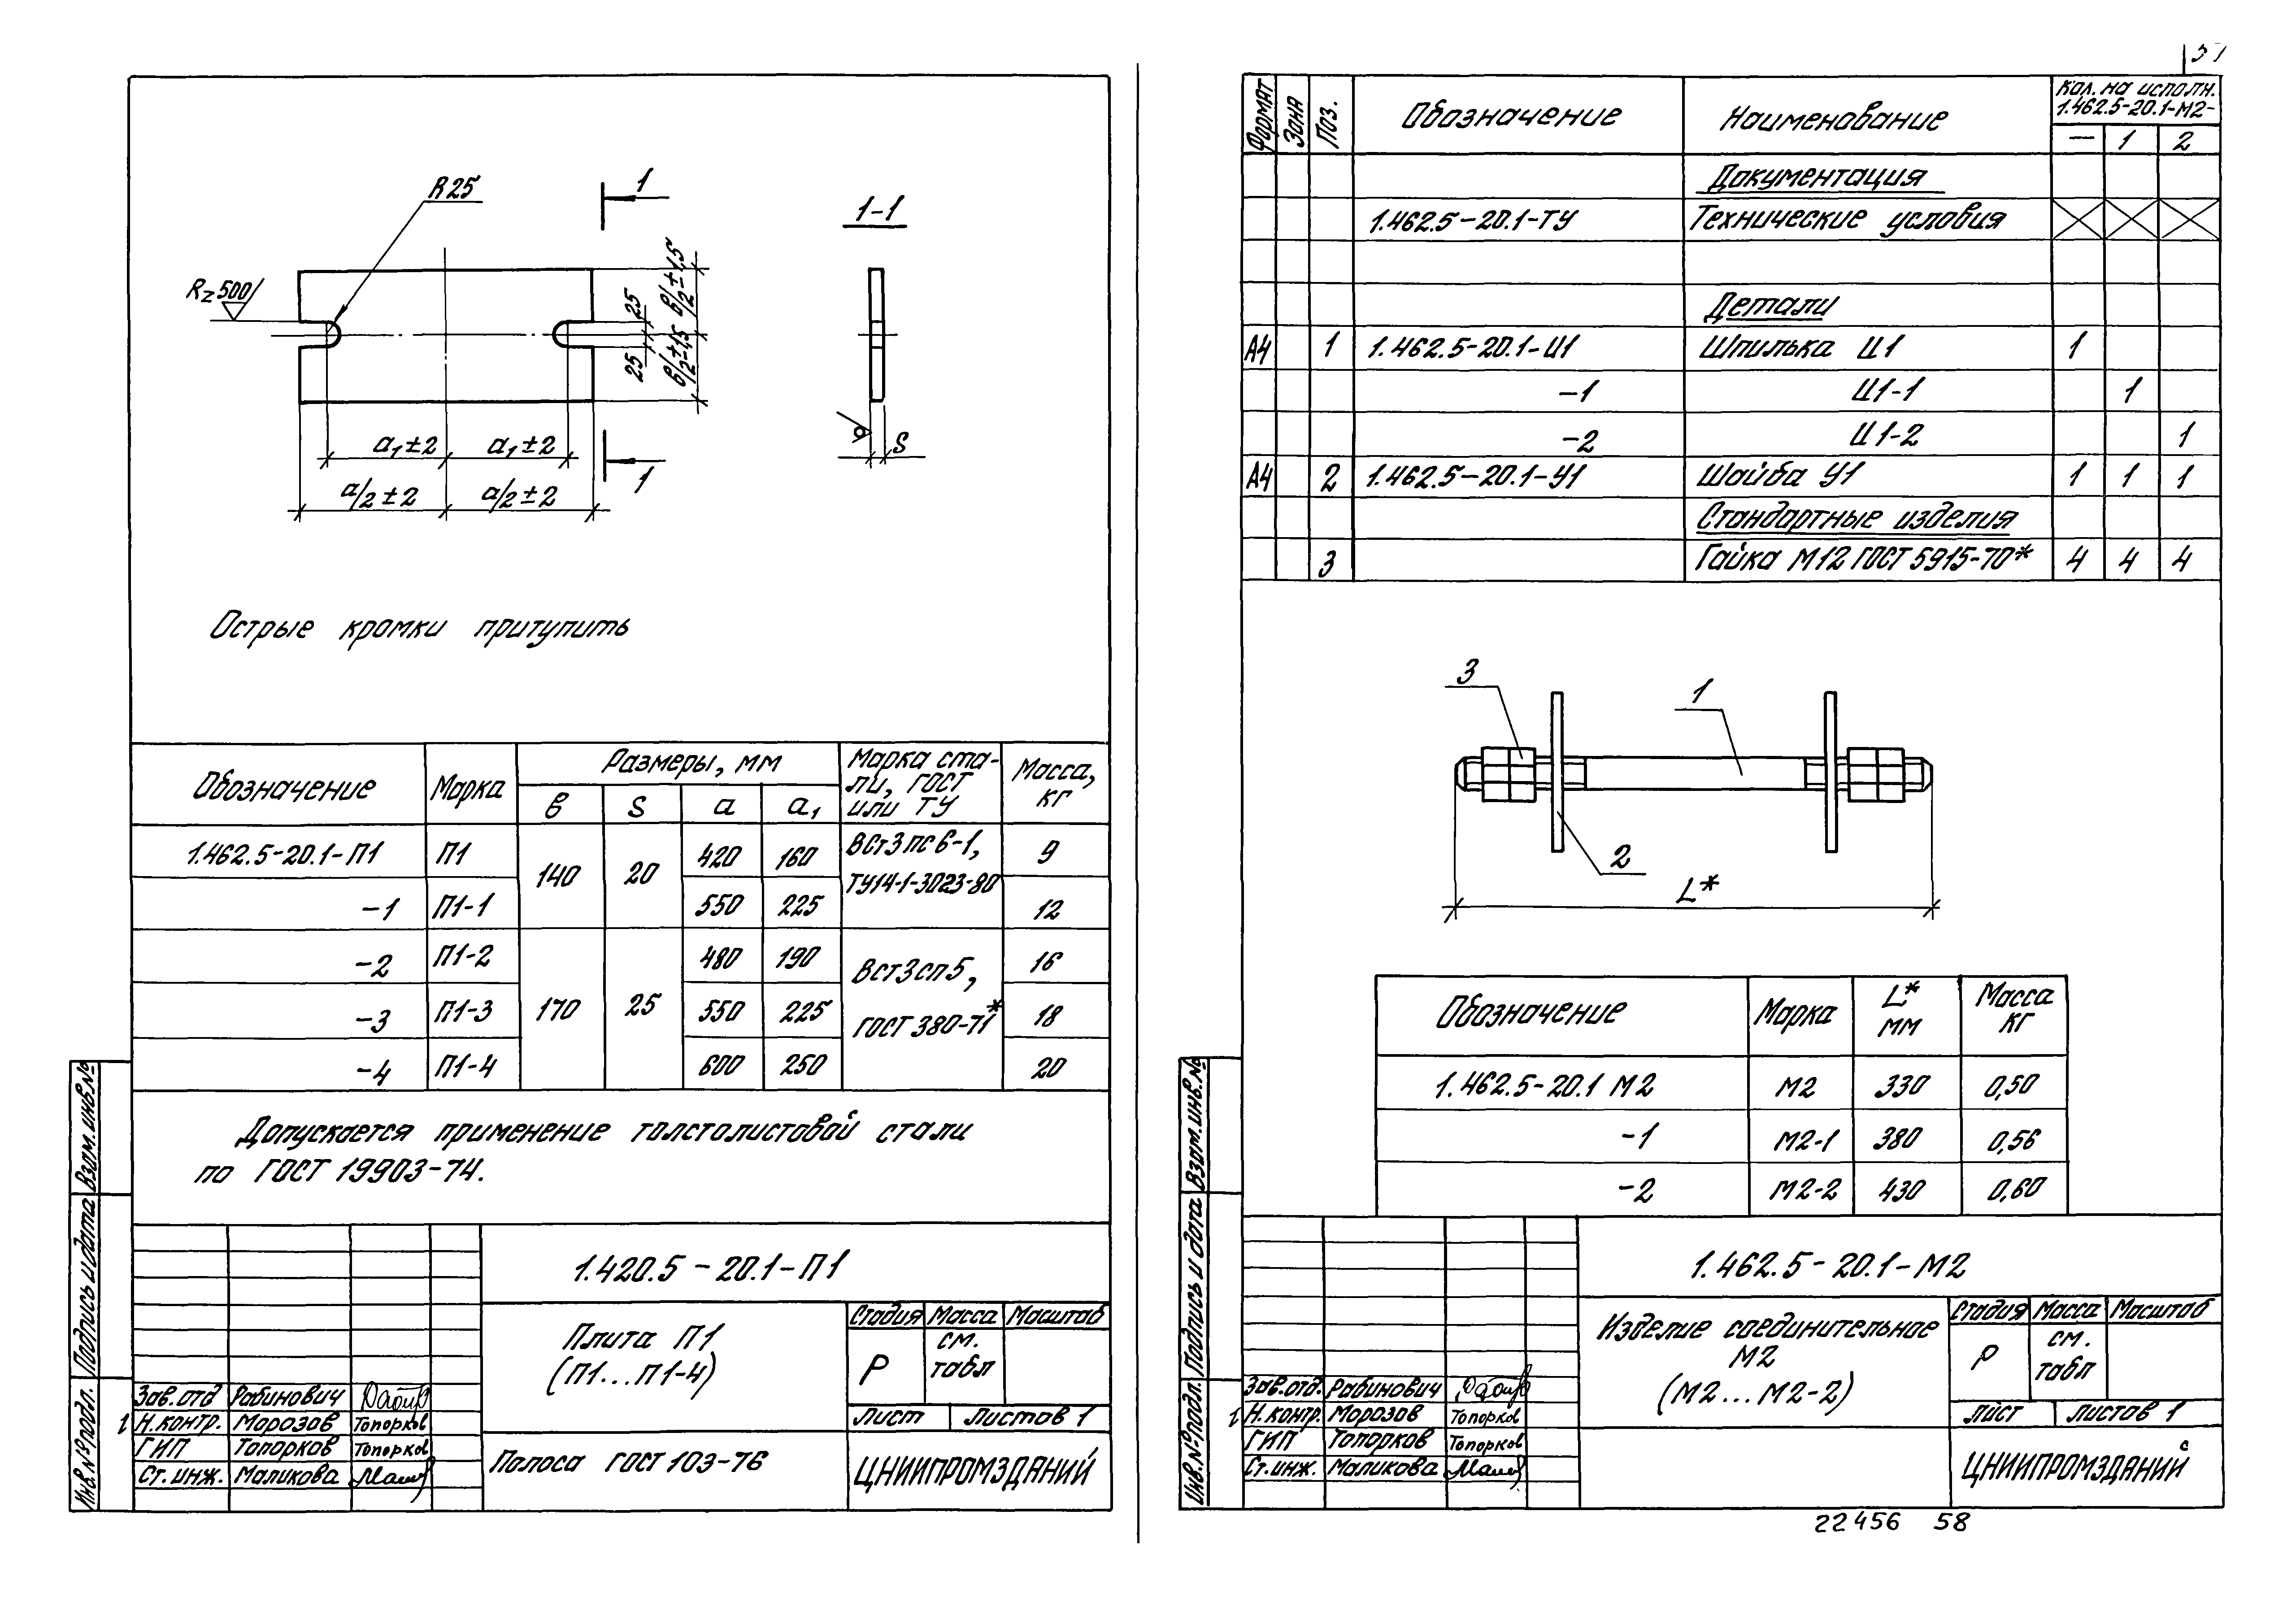 R25
1
1-1
Rz 500
25
25
в/2 ± 1,5
в/2 ± 1,5
a₁ ± 2
a₁ ± 2
a/2 ± 2
a/2 ± 2
1
S
Острые кромки притупить
Обозначение Марка Размеры, мм Марка ста- Масса,
ли, ГОСТ кг
в S a a₁ или ТУ
1.462.5-20.1-П1 П1 140 20 420 160 ВСт3пс6-1, 9
-1 П1-1 550 225 ТУ14-1-3023-80 12
-2 П1-2 480 190 ВСт3сп5, 16
-3 П1-3 170 25 550 225 ГОСТ 380-71* 18
-4 П1-4 600 250 20
Допускается применение толстолистовой стали
по ГОСТ 19903-74.
1.420.5-20.1-П1
Плита П1
(П1...П1-4)
Стадия Масса Масштаб
Р см.
табл
Лист Листов 1
Полоса ГОСТ 103-76
ЦНИИПРОМЗДАНИЙ
Зав.отд Рабинович
Н.контр. Морозов Топорков
ГИП Топорков Топорков
Ст.инж. Маликова
Инв.№ подл. Подпись и дата Взам.инв.№
Формат Зона Поз. Обозначение Наименование Кол. на исполн.
1.462.5-20.1-М2-
— 1 2
Документация
1.462.5-20.1-ТУ Технические условия
Детали
А4 1 1.462.5-20.1-Ш1 Шпилька Ш1 1
-1 Ш1-1 1
-2 Ш1-2 1
А4 2 1.462.5-20.1-У1 Шайба У1 1 1 1
Стандартные изделия
3 Гайка М12 ГОСТ 5915-70* 4 4 4
3
1
2
L*
Обозначение Марка L* Масса
мм кг
1.462.5-20.1 М2 М2 330 0,50
-1 М2-1 380 0,56
-2 М2-2 430 0,60
1.462.5-20.1-М2
Изделие соединительное
М2
(М2...М2-2)
Стадия Масса Масштаб
Р см.
табл
Лист Листов 1
ЦНИИПРОМЗДАНИЙ
Зав.отд. Рабинович
Н.контр. Морозов Топорков
ГИП Топорков Топорков
Ст.инж. Маликова
Инв.№ подл. Подпись и дата Взам.инв.№
22456 58